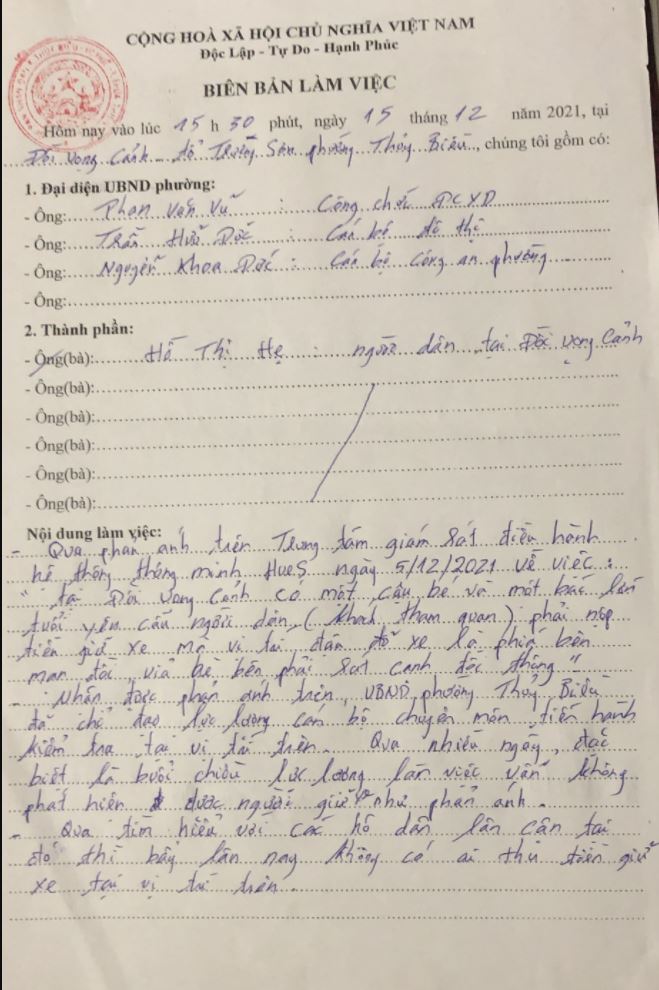 CỘNG HOÀ XÃ HỘI CHỦ NGHĨA VIỆT NAM
Độc Lập - Tự Do - Hạnh Phúc
BIÊN BẢN LÀM VIỆC
Hôm nay vào lúc 15 h 30 phút, ngày 15 tháng 12 năm 2021, tại
Đồi Vọng Cảnh phường Thủy Biều, chúng tôi gồm có:
1. Đại diện UBND phường:
- Ông: Phan Văn Vũ : Công chức ĐCXD
- Ông: Trần Hữu Đức : Cán bộ đô thị
- Ông: Nguyễn Khoa Đức : Cán bộ công an phường
- Ông:
2. Thành phần:
- Ông(bà): Hồ Thị Hẹ : người dân tại Đồi Vọng Cảnh
- Ông(bà):
- Ông(bà):
- Ông(bà):
- Ông(bà):
- Ông(bà):
Nội dung làm việc:
- Qua phản ánh trên Trung tâm giám sát điều hành
hệ thống thông minh HueS ngày 5/12/2021 về việc :
" tại Đồi Vọng Cảnh có một cậu bé và một bác lớn
tuổi yêu cầu người dân (khách tham quan) phải nộp
tiền giữ xe mà vị trí đậu đỗ xe là phía bên
man đồi, vỉa hè bên phải sát cạnh dốc thông "
- Nhận được phản ánh trên, UBND phường Thủy Biều
đã chỉ đạo lực lượng cán bộ chuyên môn tiến hành
kiểm tra tại vị trí trên. Qua nhiều ngày, đặc
biệt là buổi chiều lực lượng làm việc vẫn không
phát hiện được người giữ như phản ánh.
- Qua tìm hiểu với các hộ dân lân cận tại
đó thì bấy lâu nay không có ai thu tiền giữ
xe tại vị trí trên.